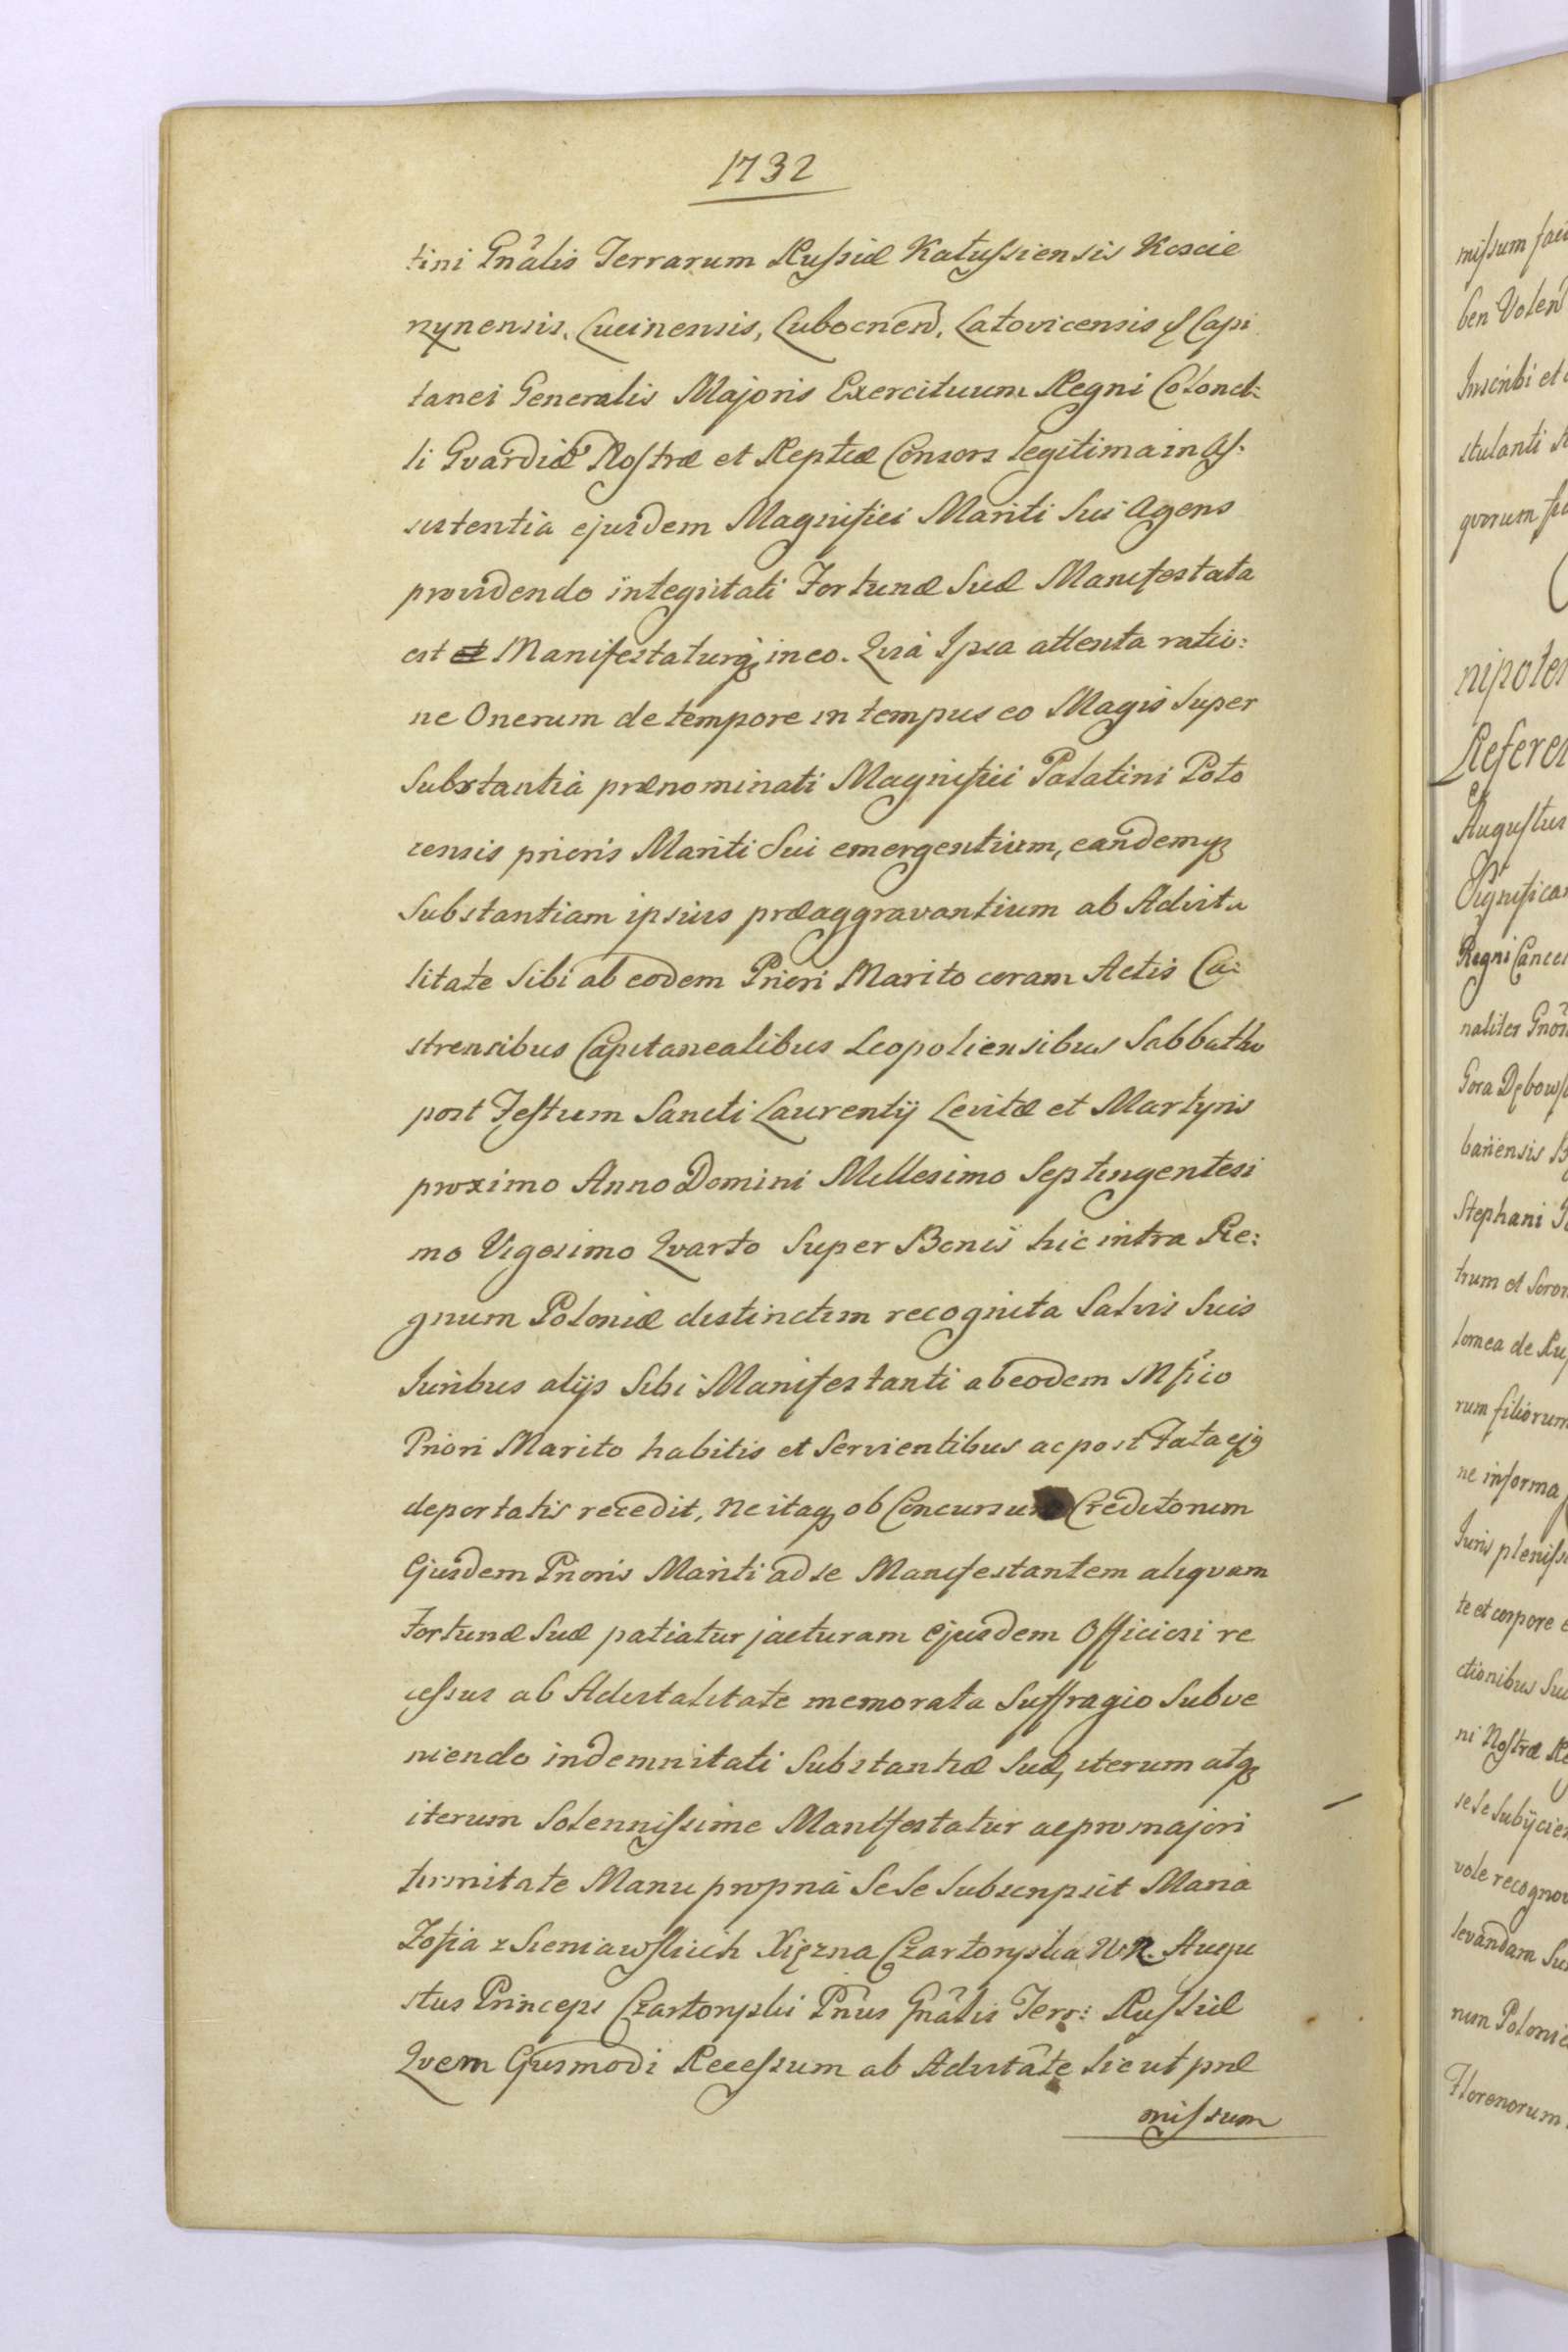 1732
tini Gnâlis Terrarum Russiæ Kałussiensis Koscie
rzynensis, Lucinensis, Lubocnen, Latovicensis &c Capi
tanei Generalis Majoris Exercituum Regni Colonel:
li Gvardiæ Nostræ et Reptcæ Consors legitima in As:
sistentia ejusdem Magnifici Mariti Sui Agens
providendo integritati Fortunæ Suæ Manifestata
est Manifestaturq, in eo. Qvia Ipsa attenta ratio:
ne Onerum de tempore in tempus eo Magis Super
Substantia prænominati Magnifici Palatini Poło
censis prioris Mariti Sui emergentium, eandemq
Substantiam ipsius præaggravantium ab Advita
litate Sibi ab eodem Priori Marito coram Actis Ca:
strensibus Capitanealibus Leopoliensibus Sabbatho
post Festum Sancti Laurentij Levitæ et Martyris
proximo Anno Domini Millesimo Septingentesi
mo Vigesimo Qvarto Super Bonis hic intra Re:
gnum Poloniæ distinctim recognita Salvis Suis
Iuribus alijs Sibi Manifestanti ab eodem Mfico
Priori Marito habitis et Servientibus ac post Fata ejq
deportatis recedit, ne itaq, ob Concursum Creditorum
Ejusdem Prioris Mariti ad se Manifestantem aliqvam
Fortunæ Suæ patiatur jacturam Ejusdem Officiosi re
cessus ab Advitalitate memorata Suffragio Subve
niendo indemnitati Substantiæ Suæ, iterum atq
iterum Solennissime Manifestatur ac pro majori
firmitate Manu propria Sese Subscripsit Maria
Zofia z Sieniawskich Xięzna Czartoryska W R. Augu
stus Princeps Czartoryski Pnus Gnâlis Terr: Russiæ
Qvem Ejusmodi Recessum ab Advitâte sic ut præ
missum
missum
ben Volen
Inscribi et
stulanti
qvorum
nipoten
Referen
Augustus
Regni Cancel
naliter
Gora Dębows
banensis
Stephani
trum et Soror
lomea de
rum filiorum
ne informa
Iuris pleniss
te et corpore
ctionibus Sui
ni Nostræ
sese Subijcien
vole recognov
levandam
num Poloniæ
Florenorum